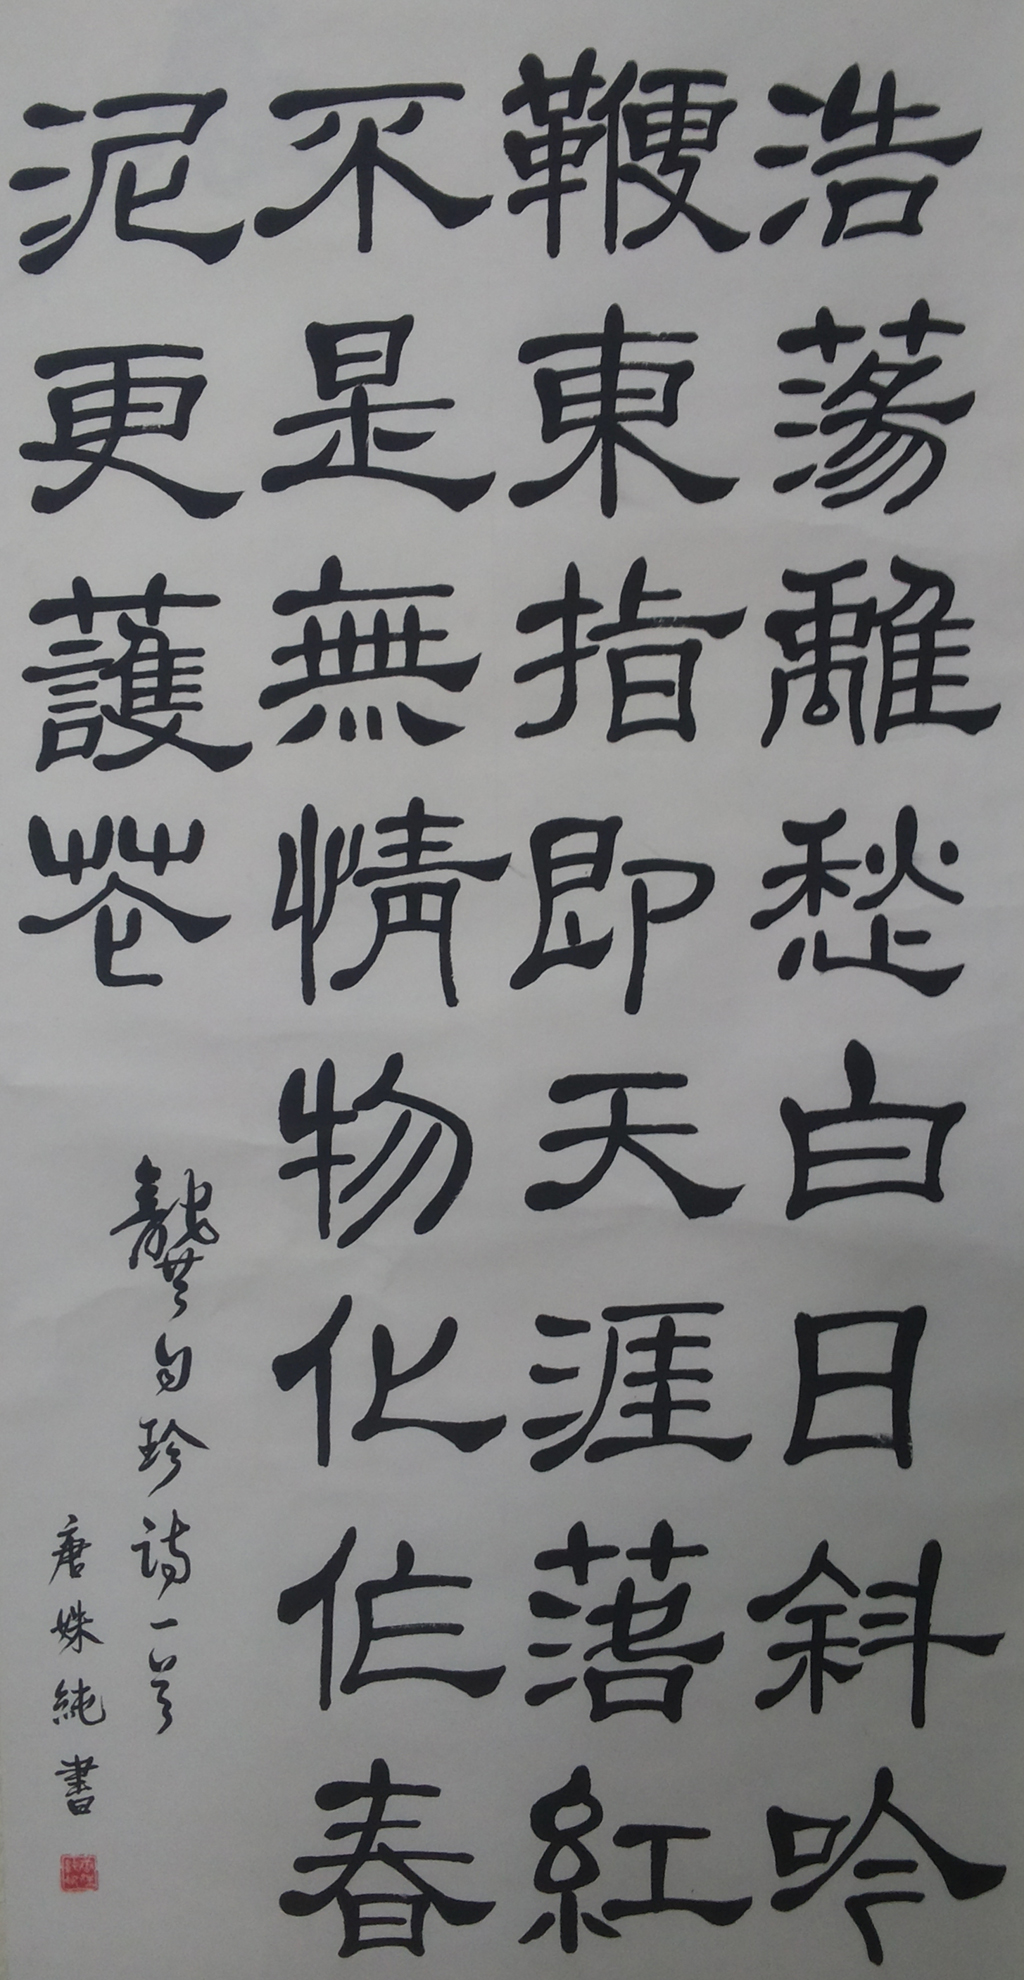 浩蕩離愁白日斜吟
鞭東指即天涯落紅
不是無情物化作春
泥更護花
龔自珍詩一首
唐姝純書